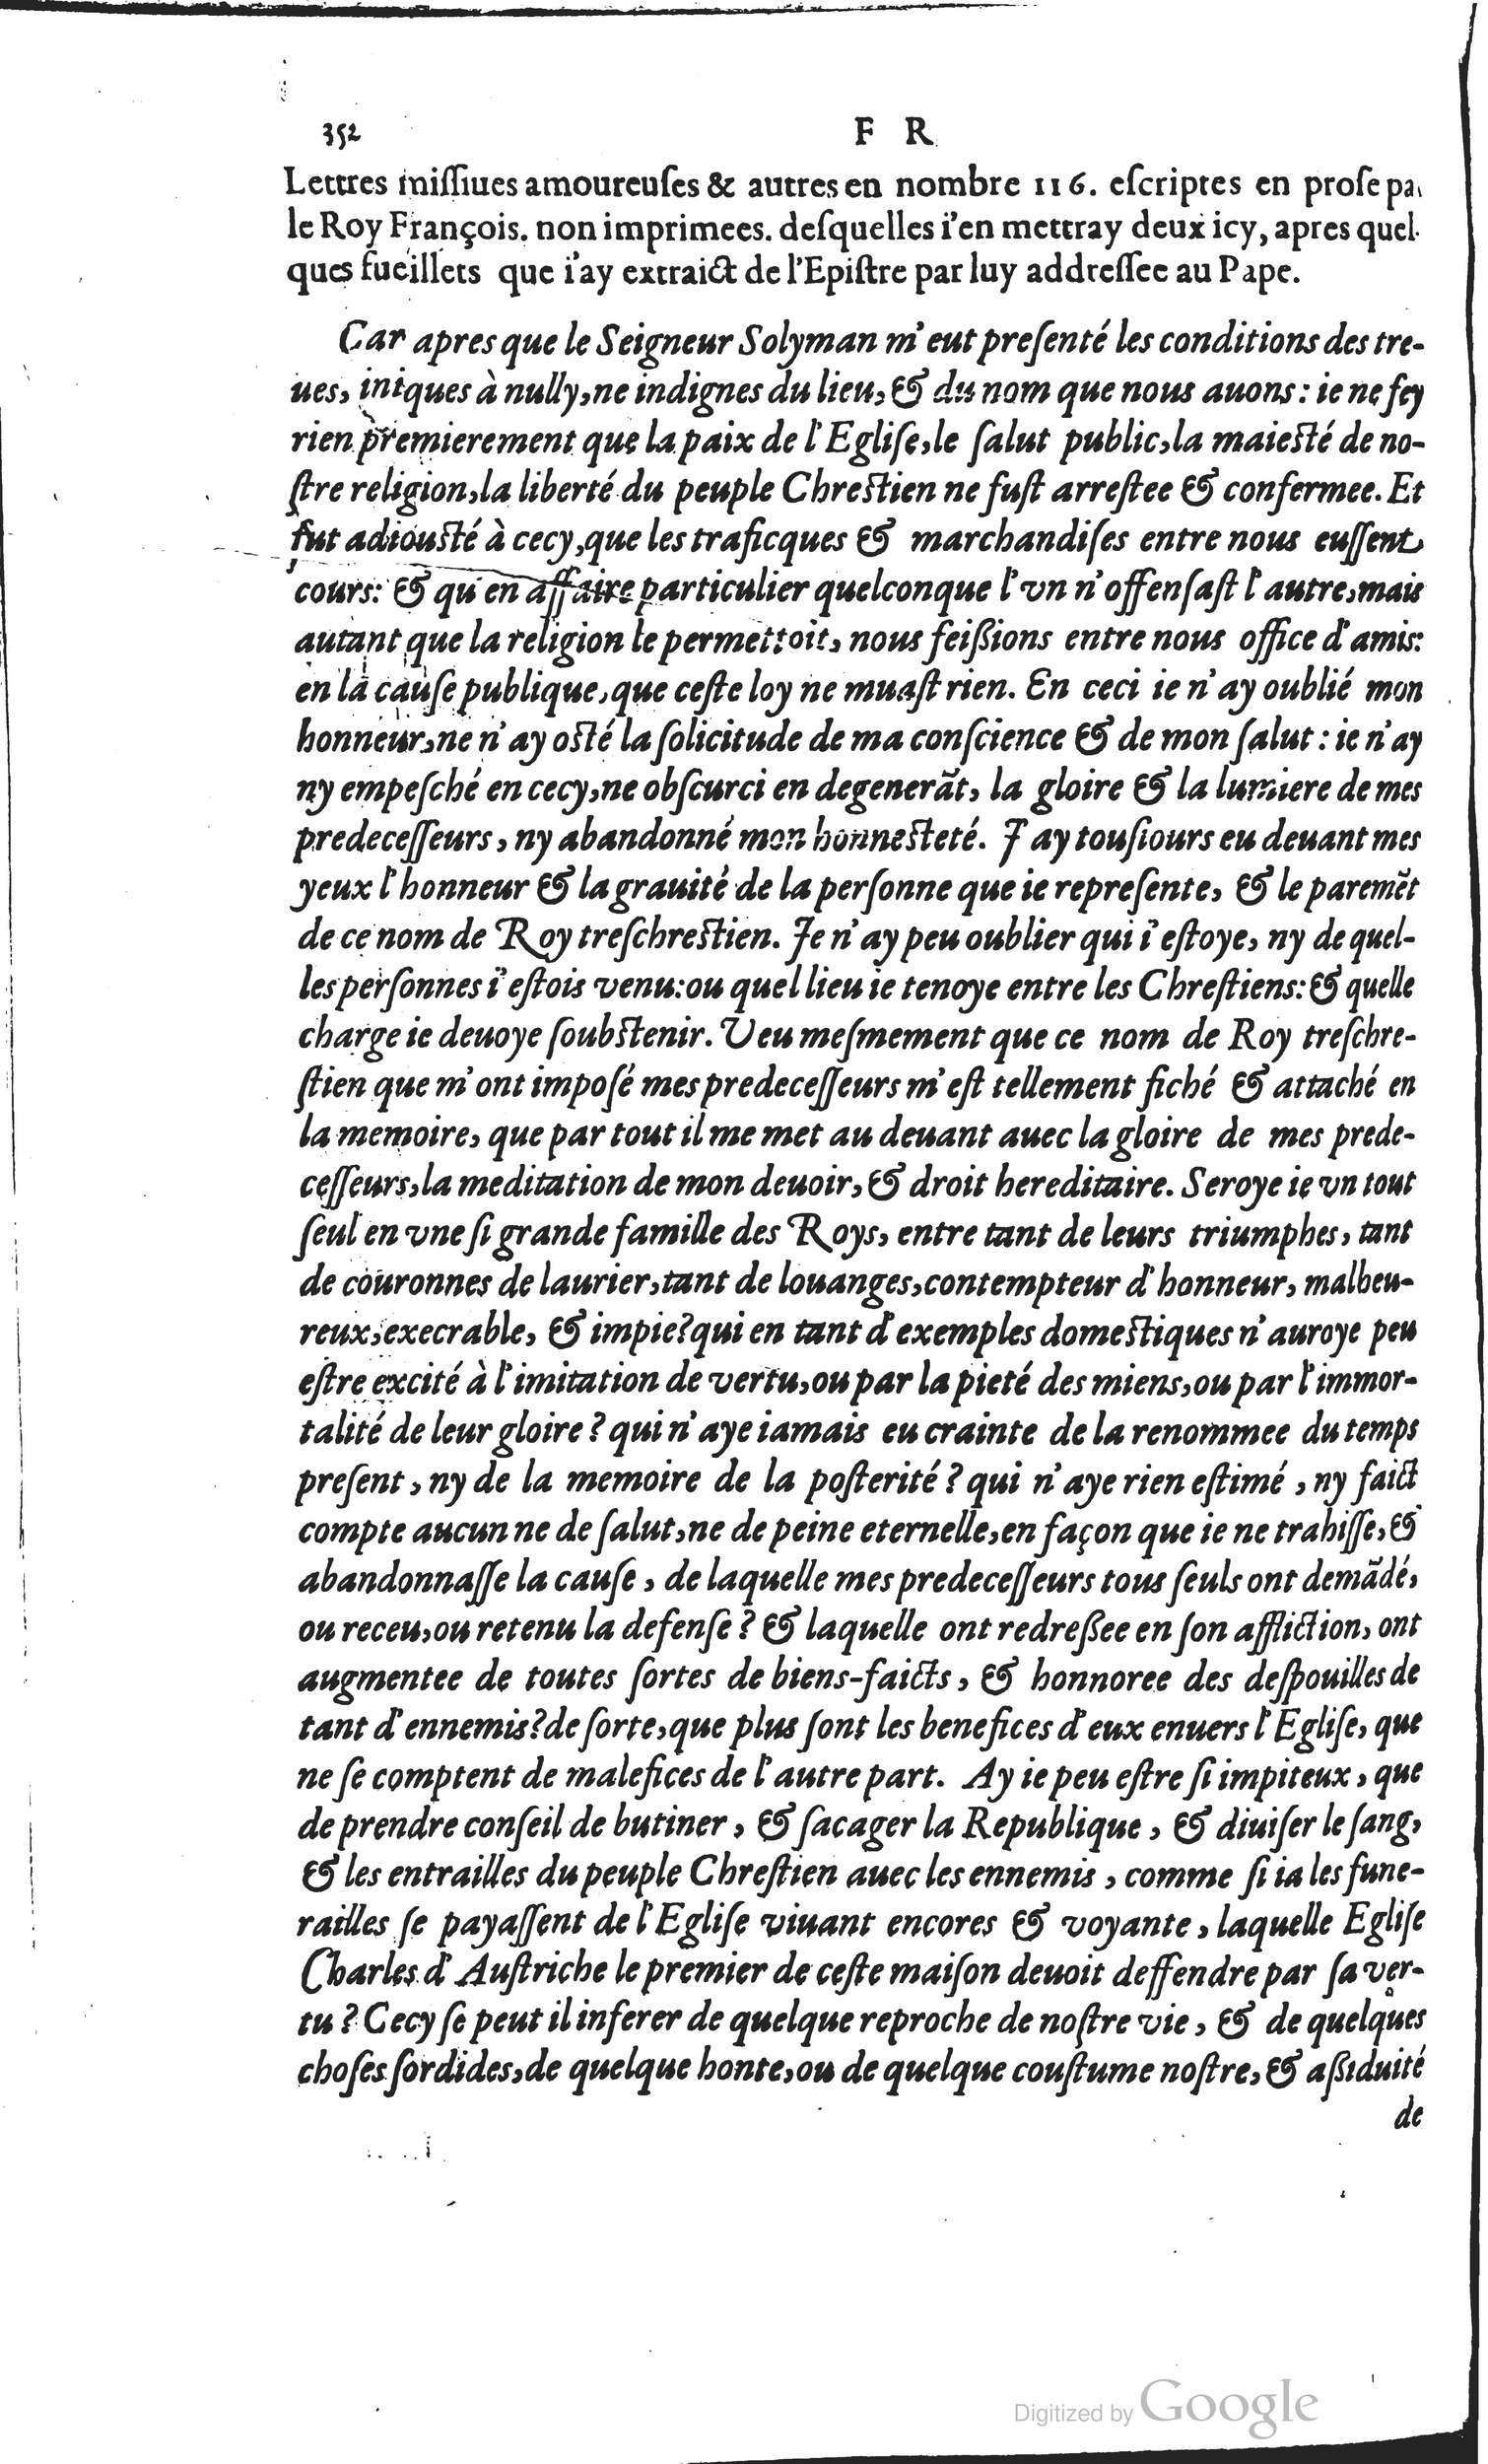 352 F R
Lettres missiues amoureuses & autres en nombre 116. escriptes en prose pa
le Roy François. non imprimees. desquelles i'en mettray deux icy, apres quel-
ques fueillets que i'ay extraict de l'Epistre par luy addressee au Pape.
Car apres que le Seigneur Solyman m'eut presenté les conditions des tre-
ues, iniques à nully, ne indignes du lieu, & du nom que nous auons: ie ne fey
rien premierement que la paix de l'Eglise, le salut public, la maiesté de no-
stre religion, la liberté du peuple Chrestien ne fust arrestee & confermee. Et
fut adiousté à cecy, que les traficques & marchandises entre nous eussent
cours: & qu'en affaire particulier quelconque l'vn n'offensast l'autre, mais
autant que la religion le permettoit, nous feissions entre nous office d'amis:
en la cause publique, que ceste loy ne muast rien. En ceci ie n'ay oublié mon
honneur, ne n'ay osté la solicitude de ma conscience & de mon salut: ie n'ay
ny empesché en cecy, ne obscurci en degenerāt, la gloire & la lumiere de mes
predecesseurs, ny abandonné mon honnesteté. J'ay tousiours eu deuant mes
yeux l'honneur & la grauité de la personne que ie represente, & le paremēt
de ce nom de Roy treschrestien. Je n'ay peu oublier qui i'estoye, ny de quel-
les personnes i'estois venu: ou quel lieu ie tenoye entre les Chrestiens: & quelle
charge ie deuoye soubstenir. Veu mesmement que ce nom de Roy treschre-
stien que m'ont imposé mes predecesseurs m'est tellement fiché & attaché en
la memoire, que par tout il me met au deuant auec la gloire de mes prede-
cesseurs, la meditation de mon deuoir, & droit hereditaire. Seroye ie vn tout
seul en vne si grande famille des Roys, entre tant de leurs triumphes, tant
de couronnes de laurier, tant de louanges, contempteur d'honneur, malheu-
reux, execrable, & impie? qui en tant d'exemples domestiques n'auroye peu
estre excité à l'imitation de vertu, ou par la pieté des miens, ou par l'immor-
talité de leur gloire? qui n'aye iamais eu crainte de la renommee du temps
present, ny de la memoire de la posterité? qui n'aye rien estimé, ny faict
compte aucun ne de salut, ne de peine eternelle, en façon que ie ne trahisse, &
abandonnasse la cause, de laquelle mes predecesseurs tous seuls ont demādé,
ou receu, ou retenu la defense? & laquelle ont redressee en son affliction, ont
augmentee de toutes sortes de biens-faicts, & honnoree des despouilles de
tant d'ennemis? de sorte, que plus sont les benefices d'eux enuers l'Eglise, que
ne se comptent de malefices de l'autre part. Ay ie peu estre si impiteux, que
de prendre conseil de butiner, & sacager la Republique, & diuiser le sang,
& les entrailles du peuple Chrestien auec les ennemis, comme si ia les fune-
railles se payassent de l'Eglise viuant encores & voyante, laquelle Eglise
Charles d'Austriche le premier de ceste maison deuoit deffendre par sa ver-
tu? Cecy se peut il inferer de quelque reproche de nostre vie, & de quelques
choses sordides, de quelque honte, ou de quelque coustume nostre, & assiduité
de
Digitized by Google